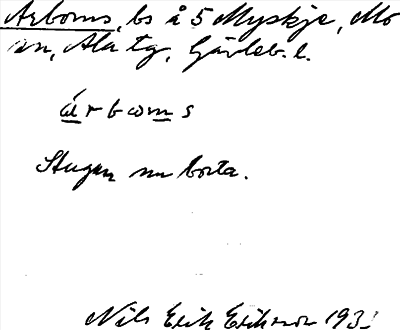 Arboms, bs å 5 Myskje, Mo
sn, Ala tg, Gävleb. l.
árboms
Stugan nu borta.
Nils Erik Eriksson 193